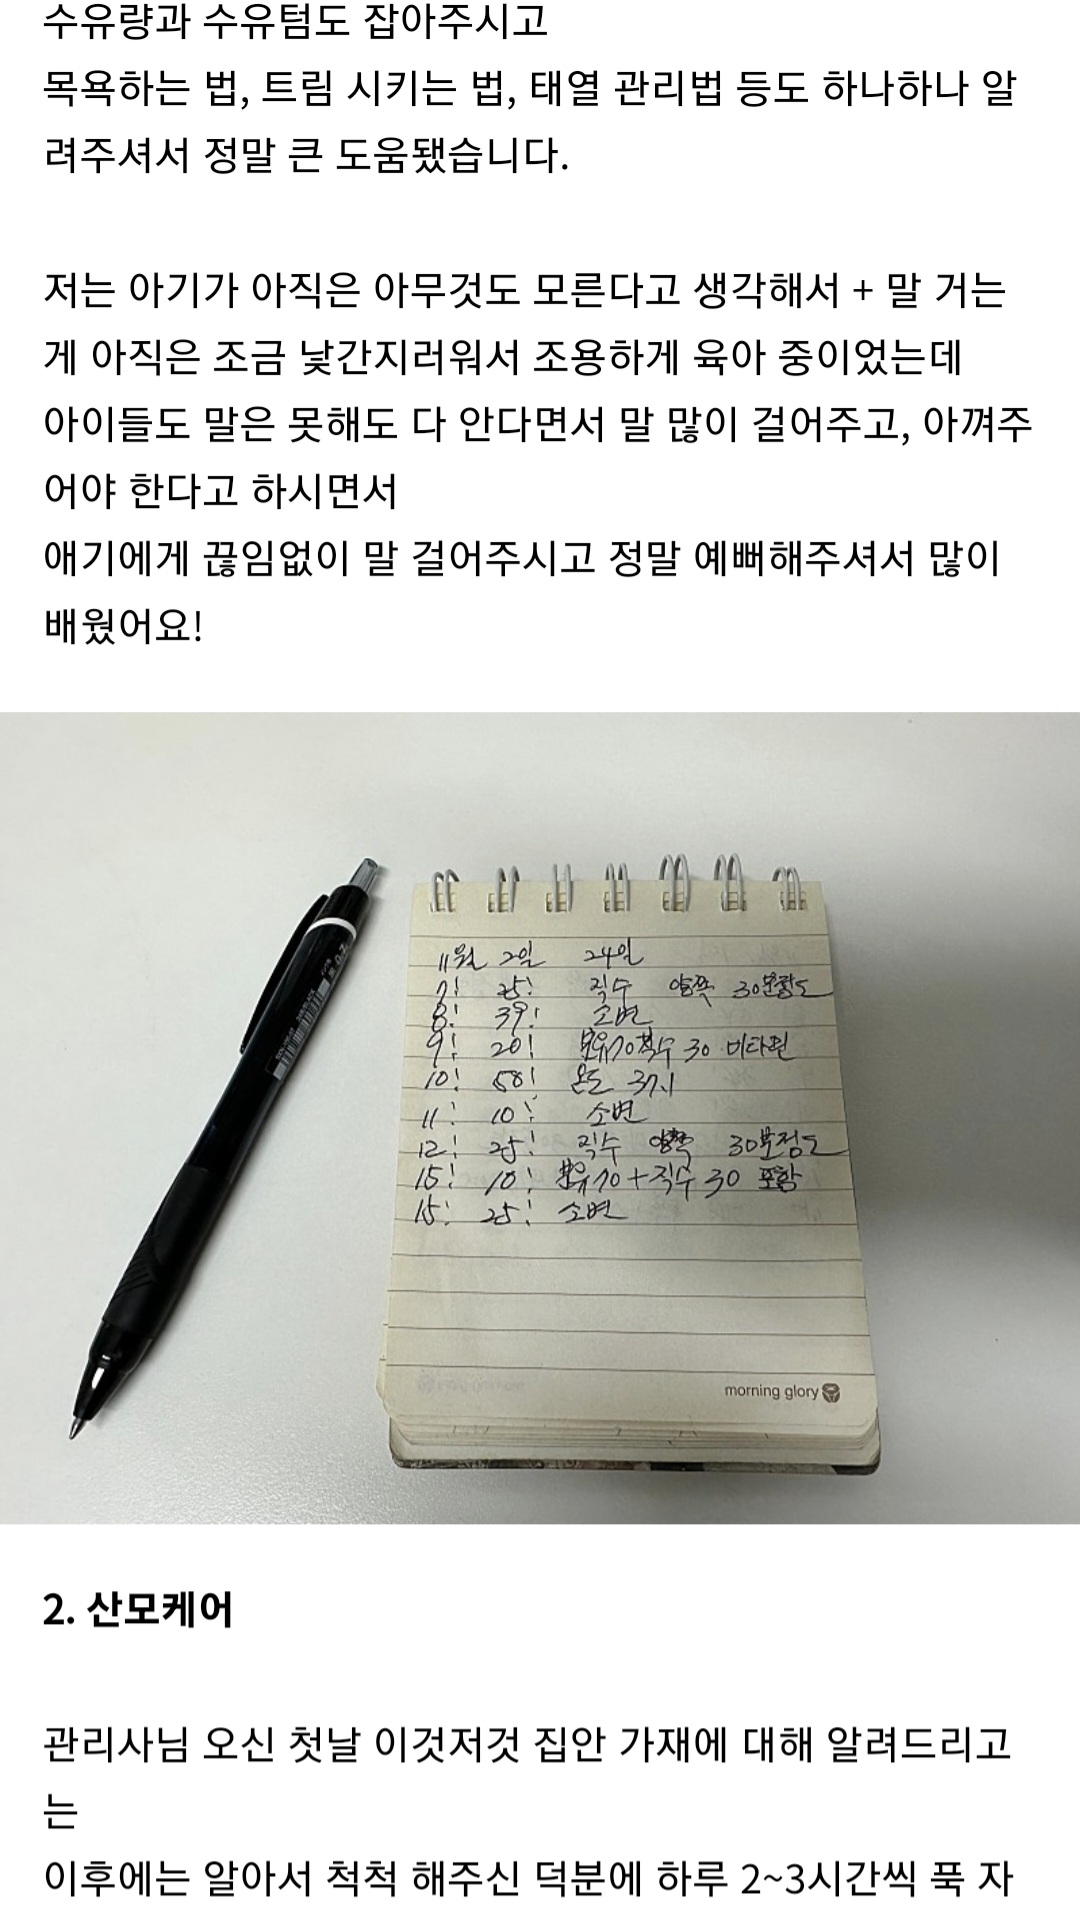 수유량과 수유텀도 잡아주시고
목욕하는 법, 트림 시키는 법, 태열 관리법 등도 하나하나 알
려주셔서 정말 큰 도움됐습니다.
저는 아기가 아직은 아무것도 모른다고 생각해서 + 말 거는
게 아직은 조금 낯간지러워서 조용하게 육아 중이었는데
아이들도 말은 못해도 다 안다면서 말 많이 걸어주고, 아껴주
어야 한다고 하시면서
애기에게 끊임없이 말 걸어주시고 정말 예뻐해주셔서 많이
배웠어요!
11월 2일 24일
7! 25! 직수 양쪽 30분정도
8! 39! 소변
9! 20! 직수 30 비타민
10! 50! 온도 37.1
11! 10! 소변
12! 25! 직수 양쪽 30분정도
15! 10! +직수 30 포함
15! 25! 소변
morning glory
2. 산모케어
관리사님 오신 첫날 이것저것 집안 가재에 대해 알려드리고
는
이후에는 알아서 척척 해주신 덕분에 하루 2~3시간씩 푹 자